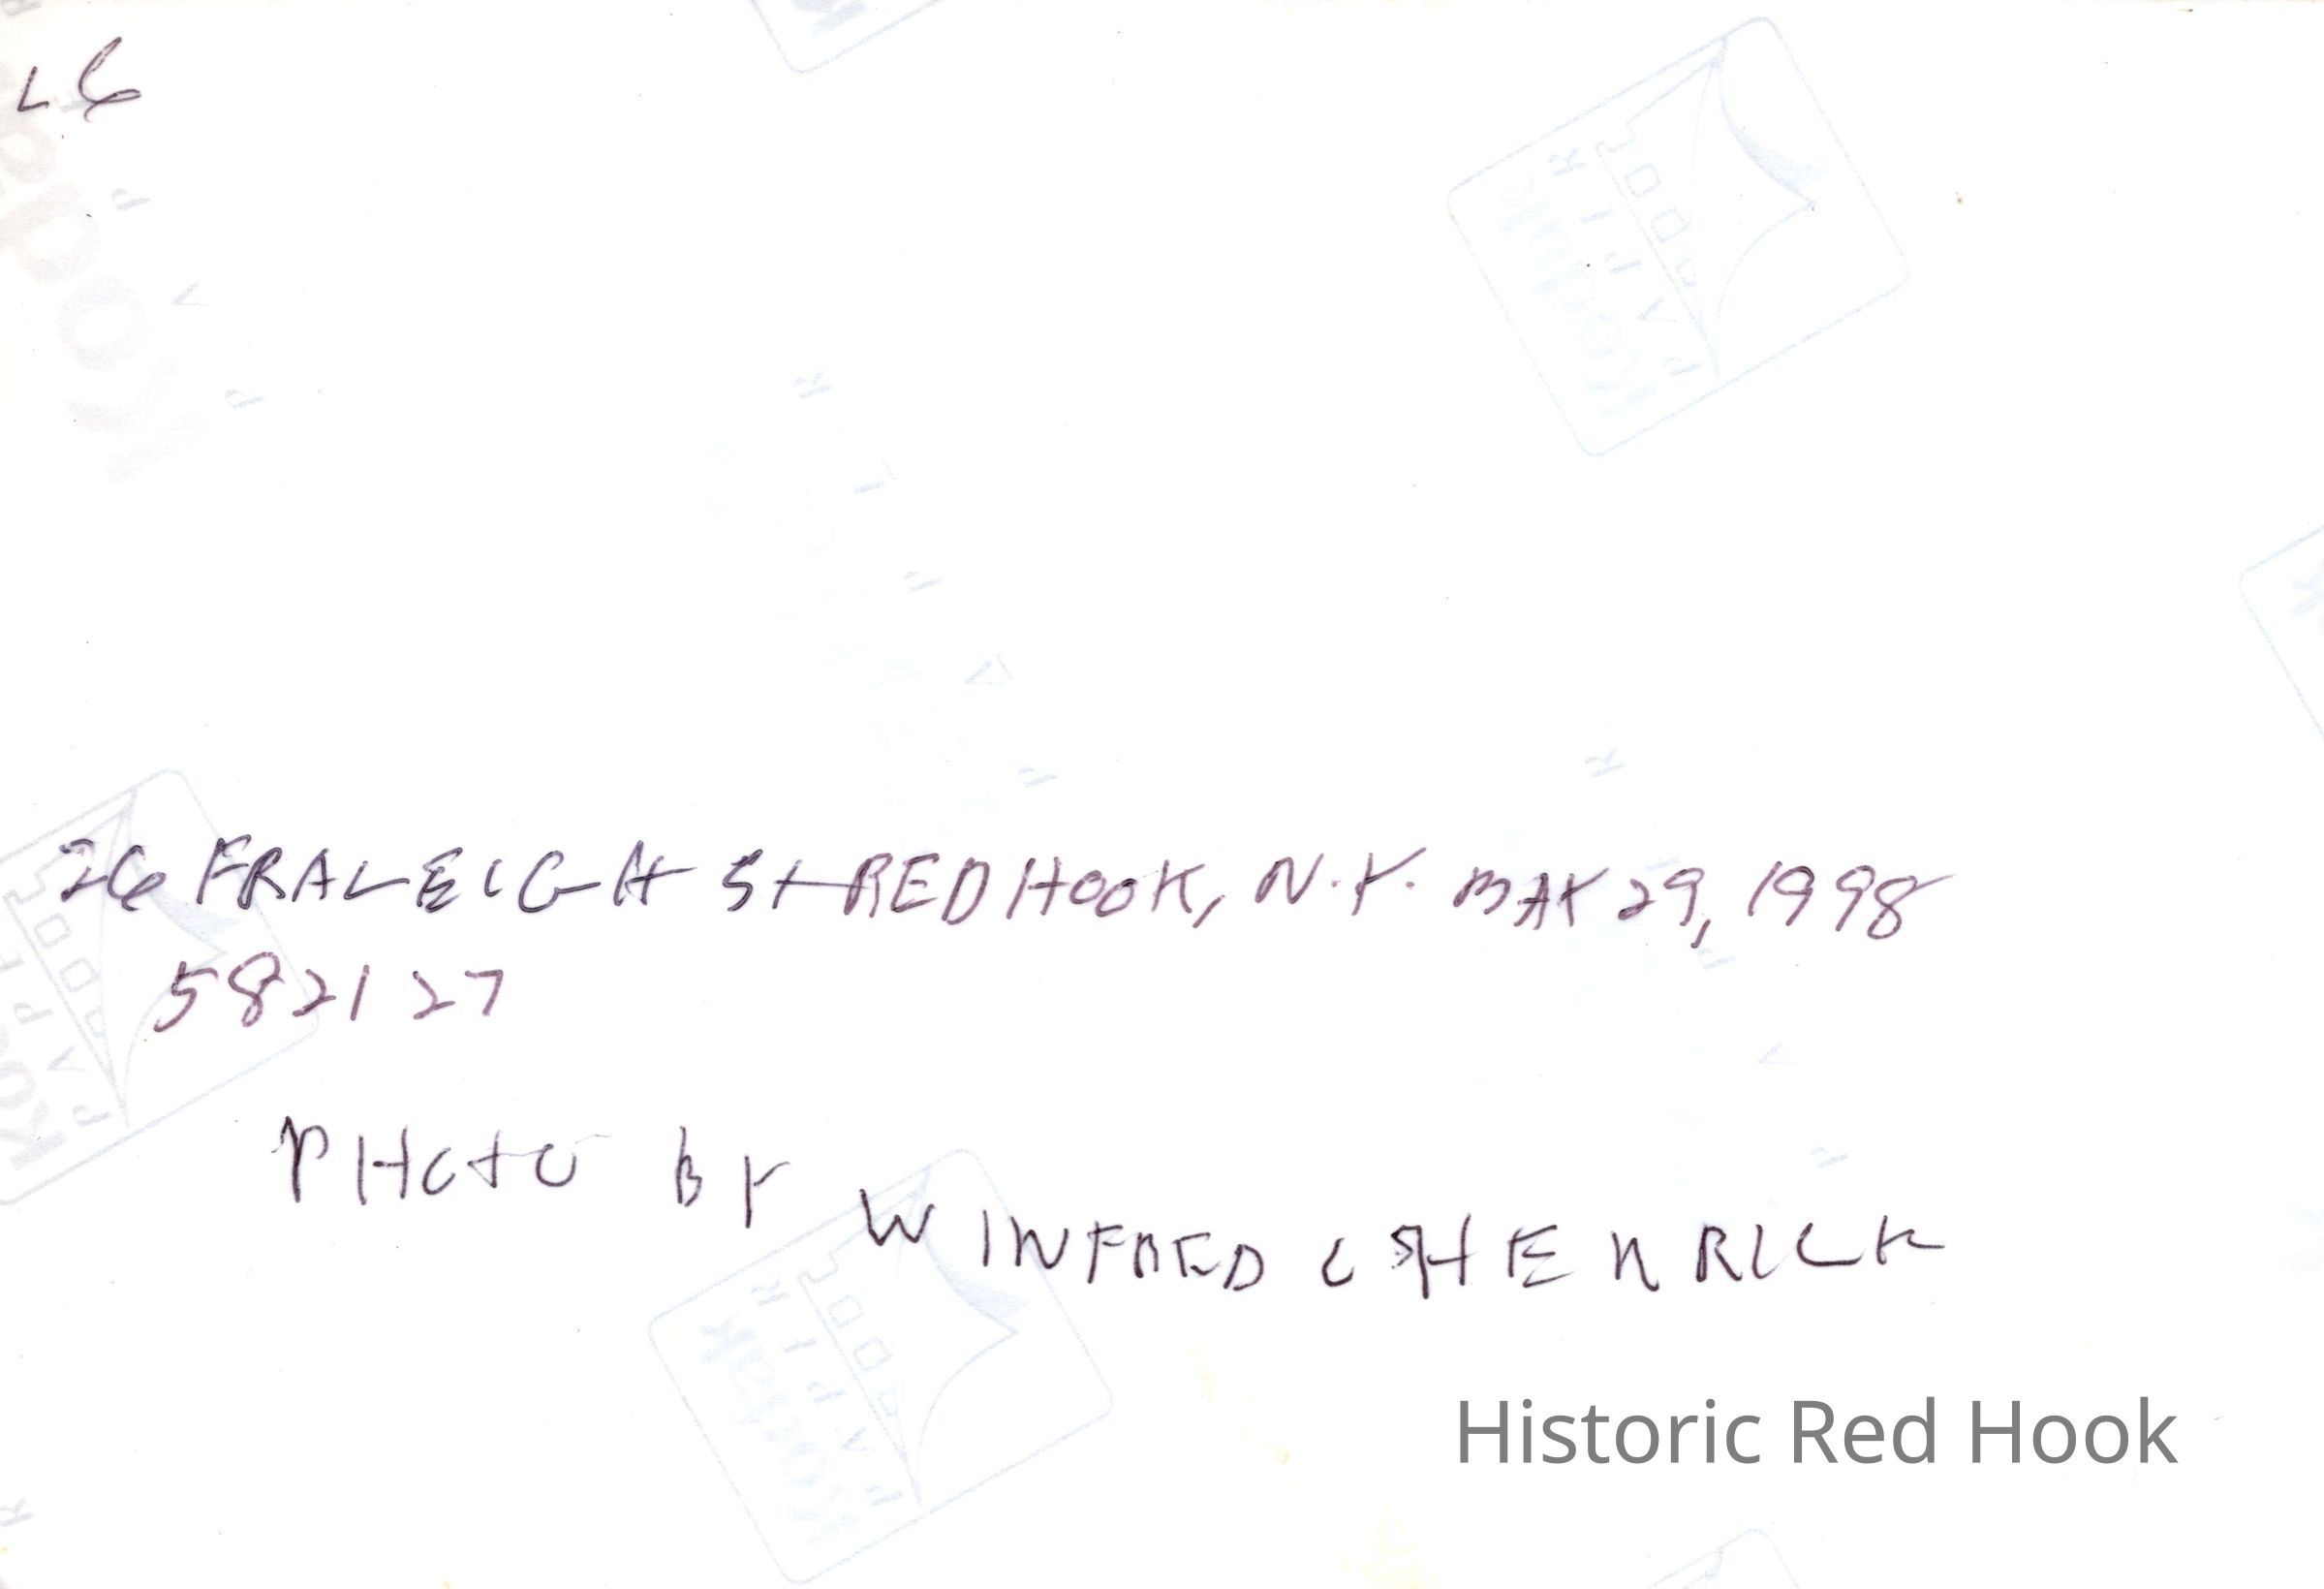 L6
26 FRALEIGH St RED HOOK, N.Y. MAY 29, 1998
582127
PHOTO BY WINFRED C SHENRICK
Historic Red Hook